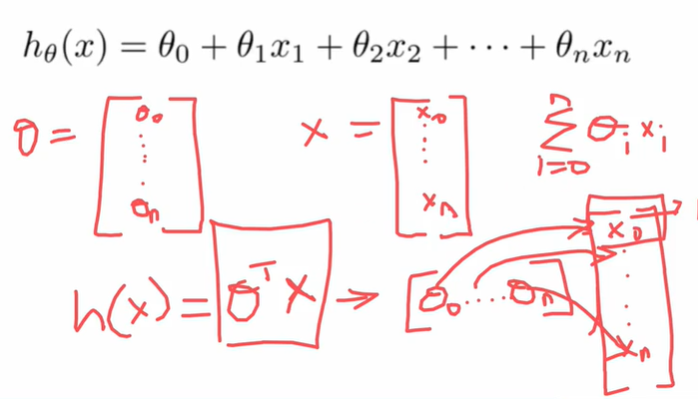 hθ(x) = θ0 + θ1x1 + θ2x2 + ··· + θnxn
θ = [θ0 ⋮ θn] x = [x0 ⋮ xn] n ∑ i=0 θi xi
h(x) = θᵀ x → [θ0 ..... θn] [x0 ⋮ xn]